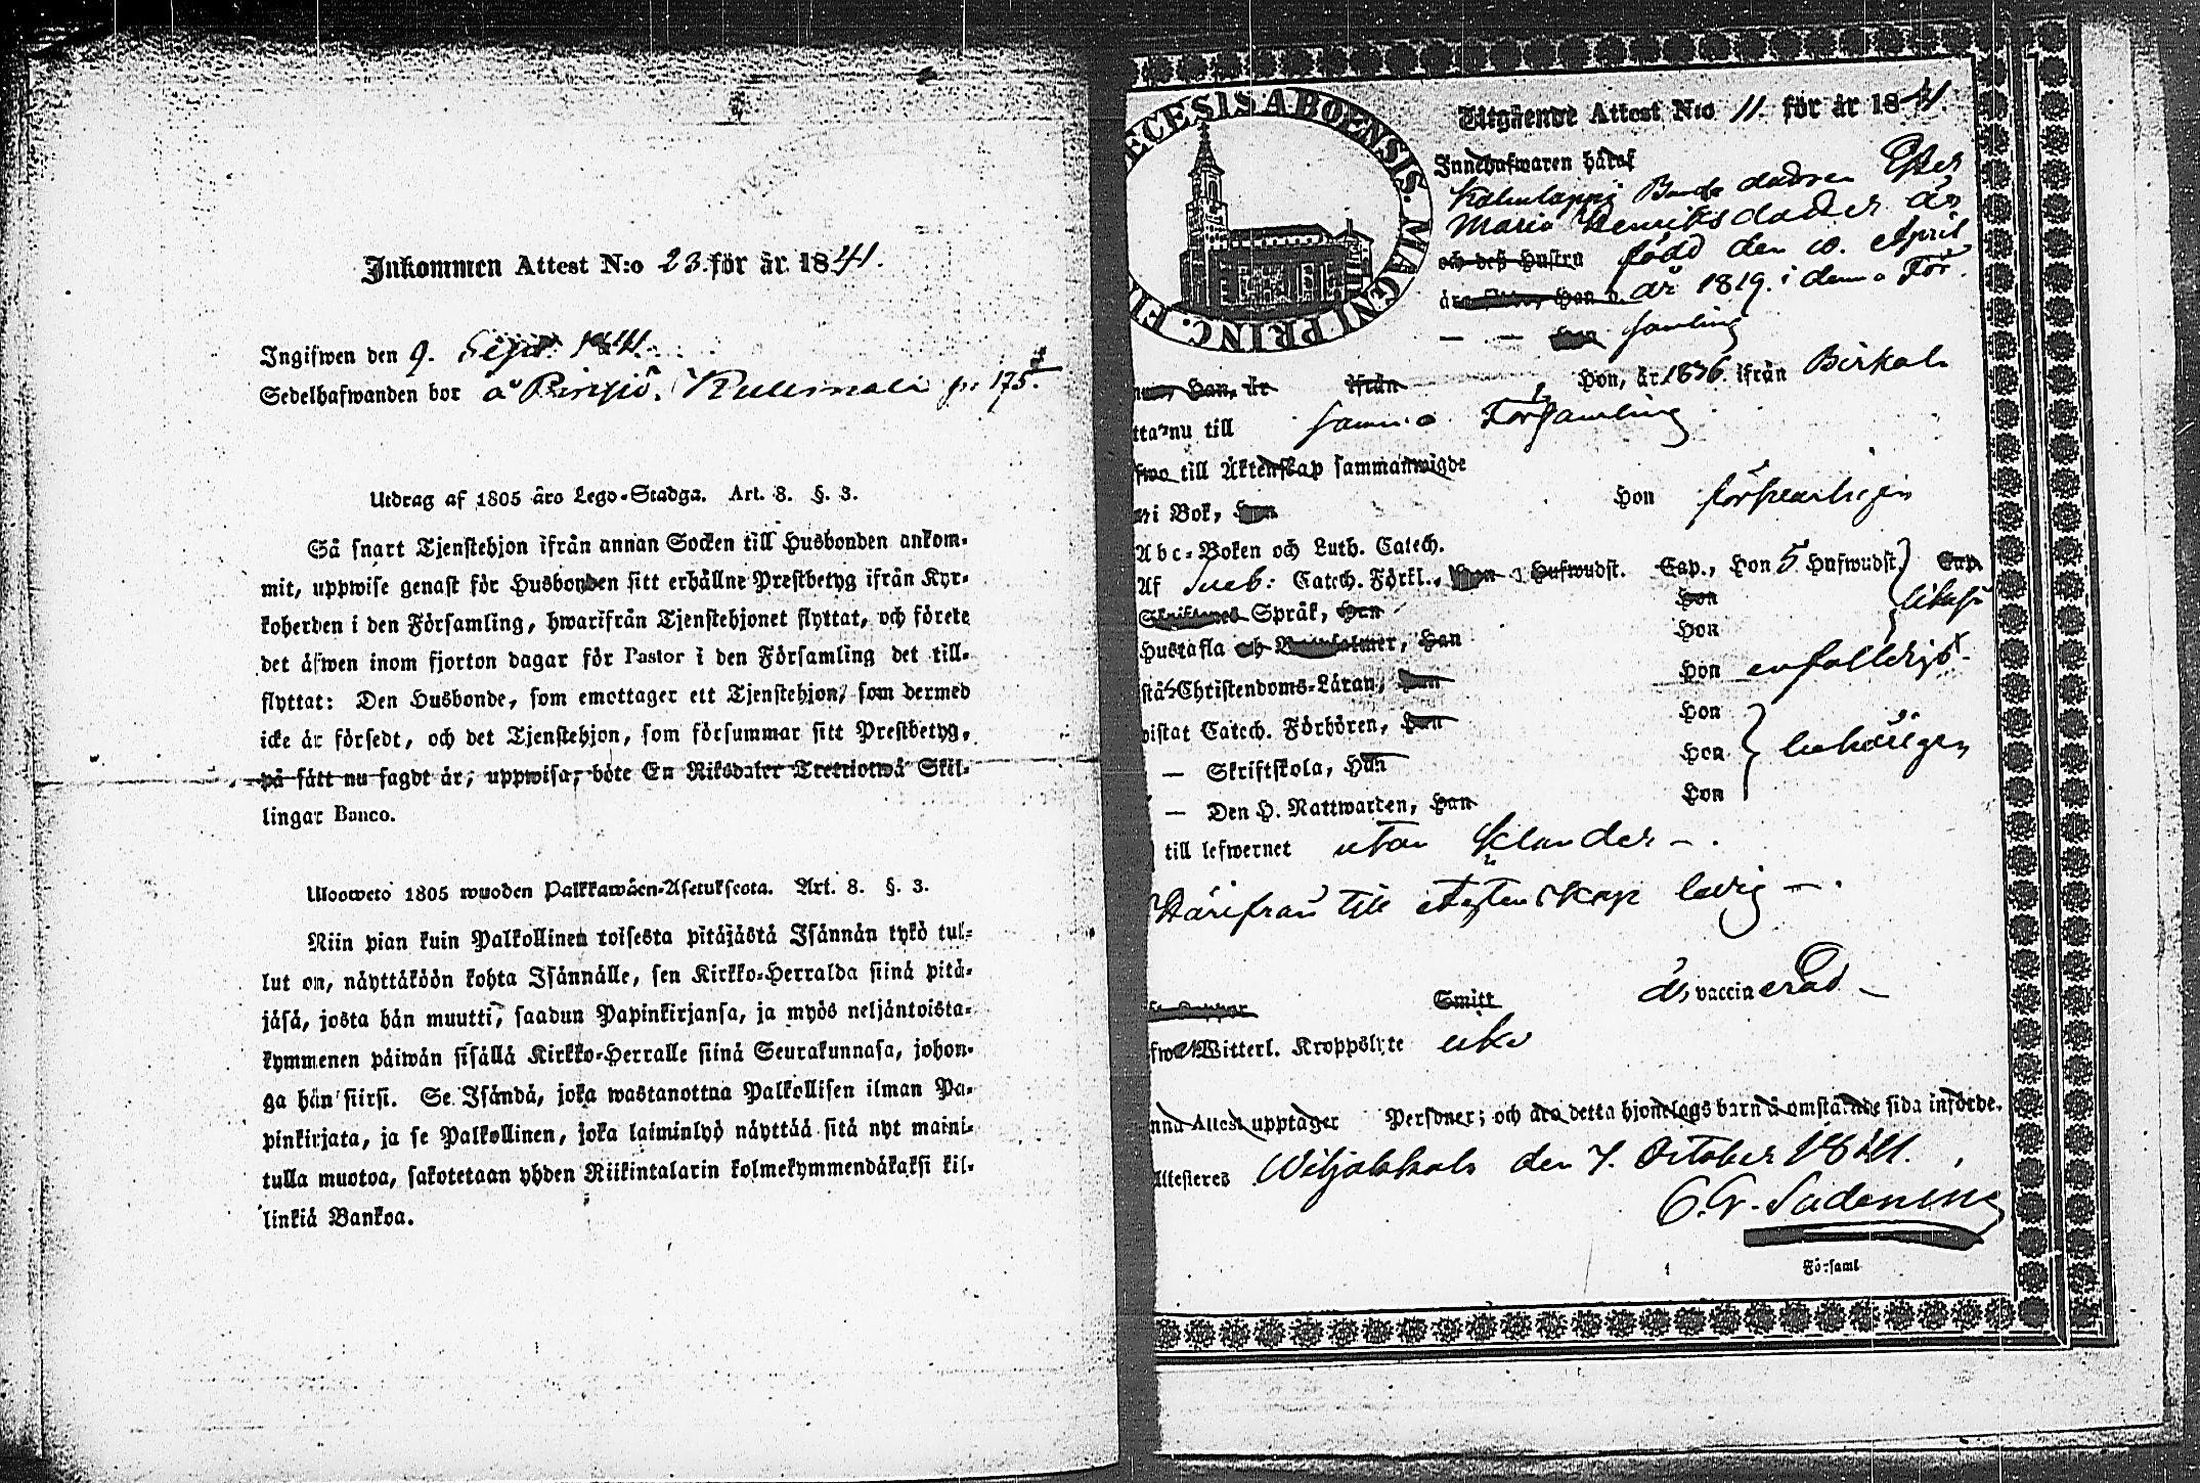 Inkommen Attest N:o 23. för år 1841.
Ingifwen den 9.
Sedelhafwanden bor å
Utdrag af 1805 års Lego-Stadga. Art. 8. §. 3.
Så snart Tjenstehjon ifrån annan Socken till Husbonden ankom-
mit, uppwise genast för Husbonden sitt erhållne Prestbetyg ifrån Kyr-
koherden i den Församling, hwarifrån Tjenstehjonet flyttat, och förete
det äfwen inom fjorton dagar för Pastor i den Församling det till-
flyttat: Den Husbonde, som emottager ett Tjenstehjon, som dermed
icke är försedt, och det Tjenstehjon, som försummar sitt Prestbetyg,
på sätt nu sagdt är, uppwisa, böte En Riksdaler Trettiotwå Skil-
lingar Banco.
Uloosweto 1805 wuoden Palkkawäen-Asetuksesta. Art. 8. §. 3.
Niin pian kuin Palkollinen toisesta pitäjästä Isännän tykö tul-
lut on, näyttäköön kohta Isännälle, sen Kirkko-Herralda siinä pitä-
jäsä, josta hän muutti, saadun Papinkirjansa, ja myös neljäntoista-
kymmenen päiwän sisällä Kirkko-Herralle siinä Seurakunnasa, johon-
ga hän siirsi. Se Isändä, joka wastanottaa Palkollisen ilman Pa-
pinkirjata, ja se Palkollinen, joka laiminlyö näyttää sitä nyt maini-
tulla muotoa, sakotetaan yhden Riikintalarin kolmekymmendäkaksi kil-
linkiä Bankoa.
ECESIS ABOENSIS. MAGNI PRINC. FI
Utgående Attest N:o 11. för år 1841
Innehafwaren häraf
Bonde dottren Ester
Maria Henriksdotter är
och deß Hustru född den 10. April
år 1819. i denna För-
samling
Han, är ifrån Hon, är 1836. ifrån Birkala
nu till samma Församling
till Äktenskap sammanwigde
i Bok, Han Hon försvarligen
Abc-Boken och Luth. Catech.
Af Sveb: Catech. Förkl., Han Hufwudst. Cap., Hon 5 Hufwudst. Cap.
Skriftenes Språk, Han Hon likaså
Hustafla och Han Hon
Christendoms-Läran, Han Hon enfaldigt.
wistat Catech. Förhören, Han Hon
— Skriftskola, Han Hon behörigen
— Den H. Nattwarden, Han Hon
till lefwernet utan klander —.
Härifrån till Ägtenskap ledig —.
Smitt är vaccinerad —
Witterl. Kroppslyte icke
Attest upptager Personer; och äro detta hjonelags barn å omstående sida införde.
Attesteres Wiljakkala den 7. October 1841.
Församl